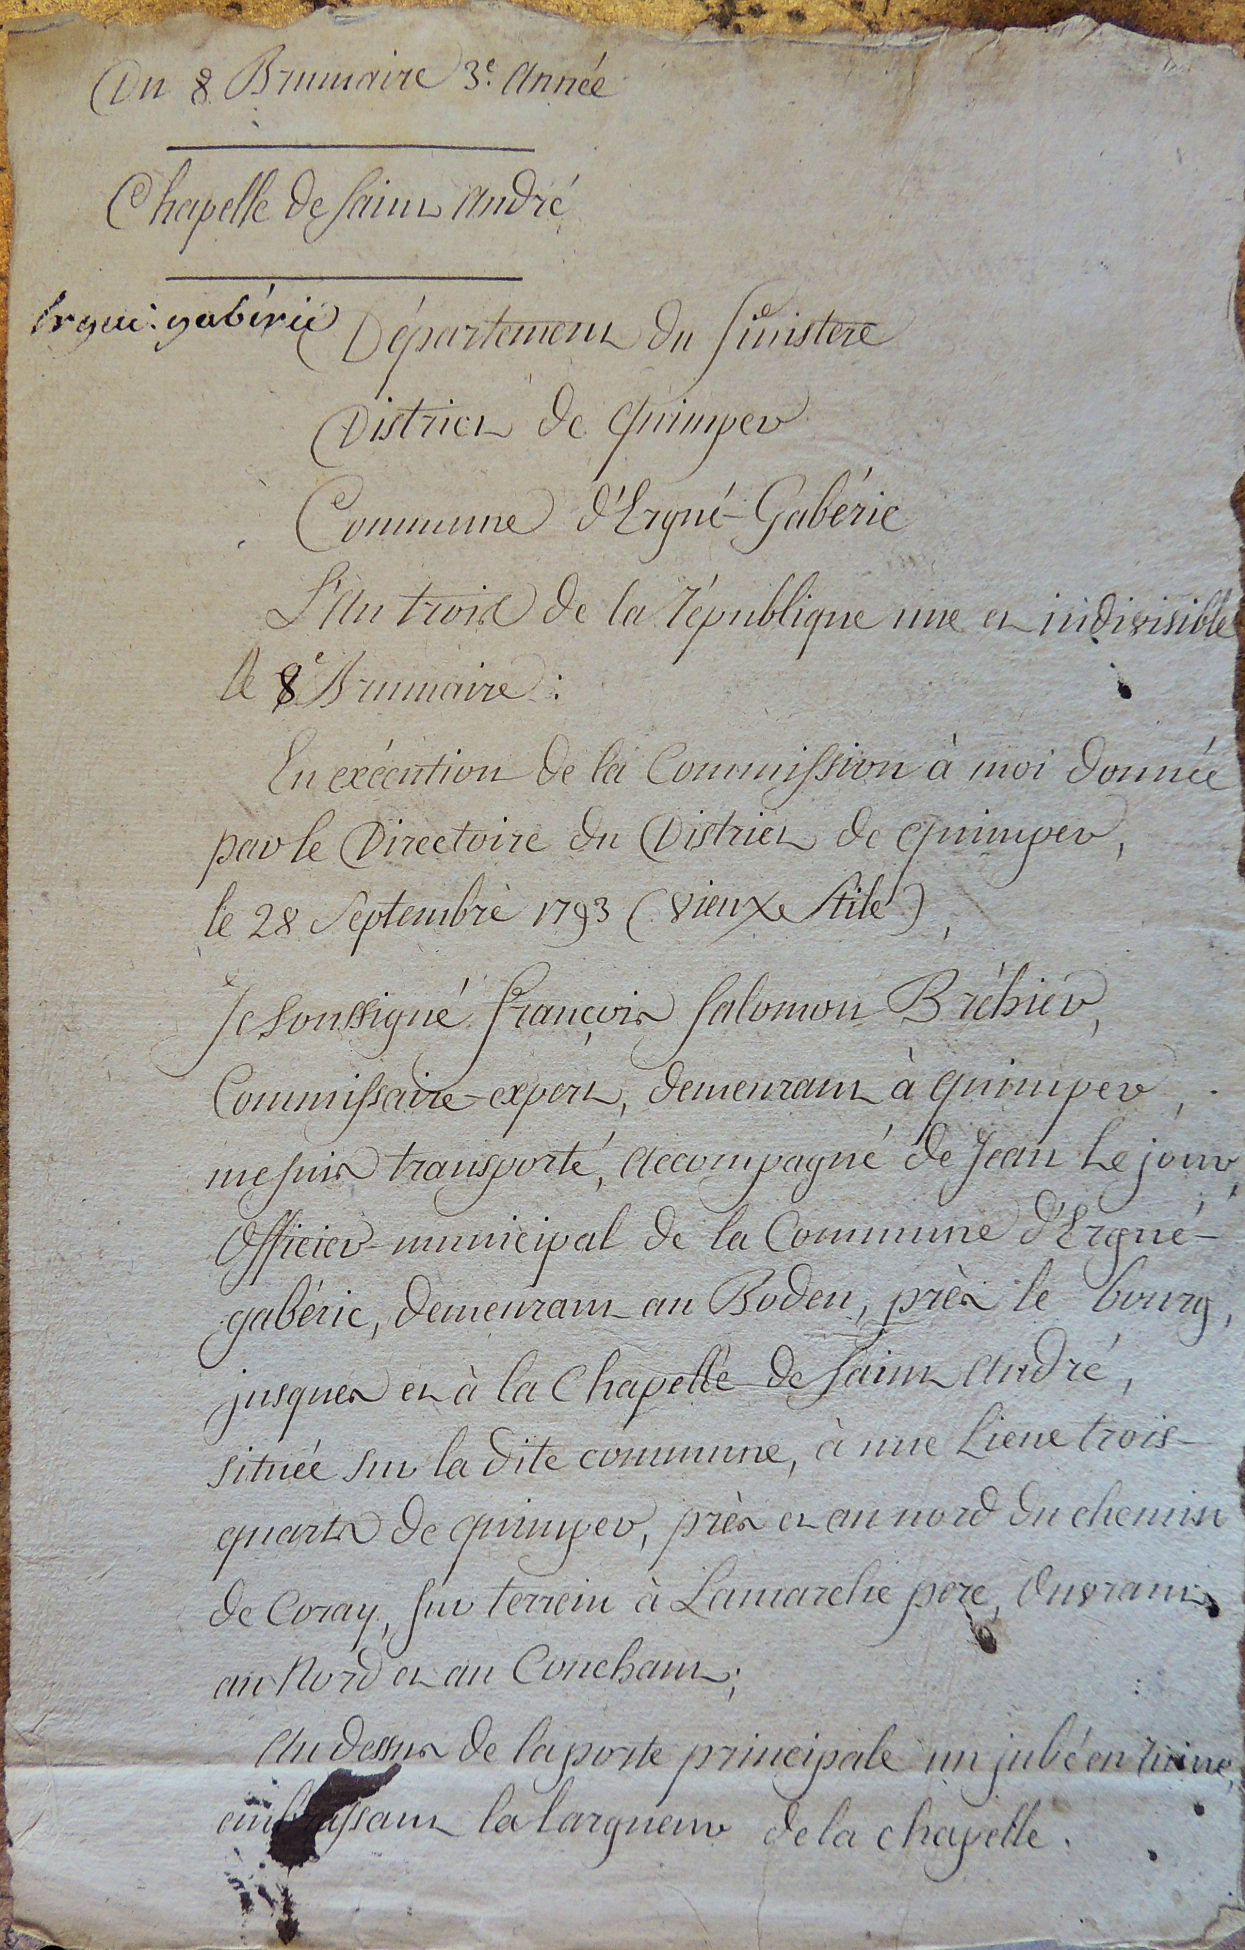 Du 8 Brumaire 3.e Année
Chapelle de Saint André
Ergué-gabéric
Département du Finistere
District de Quimper
Commune d'Ergué-Gabéric
L'An trois de la République une et indivisible
le 8e Brumaire :
En exécution de la Commission à moi donnée
par le Directoire du District de Quimper,
le 28 Septembre 1793 (vieux Stile),
Je Soussigné François Salomon Bréhier,
Commissaire-expert, demeurant à Quimper,
me suis transporté, accompagné de Jean Le jour,
Officier-municipal de la Commune d'Ergué-
gabéric, demeurant au Boden, près le bourg,
jusques et à la Chapelle de Saint André,
située sur la dite commune, à une Lieue trois-
quarts de quimper, près et au nord du chemin
de Coray, sur terrein à Lamarche pere, Ouvrant
au Nord et au Couchant ;
Au dessus de la porte principale un jubé en ruine,
embrassant la largueur de la chapelle.